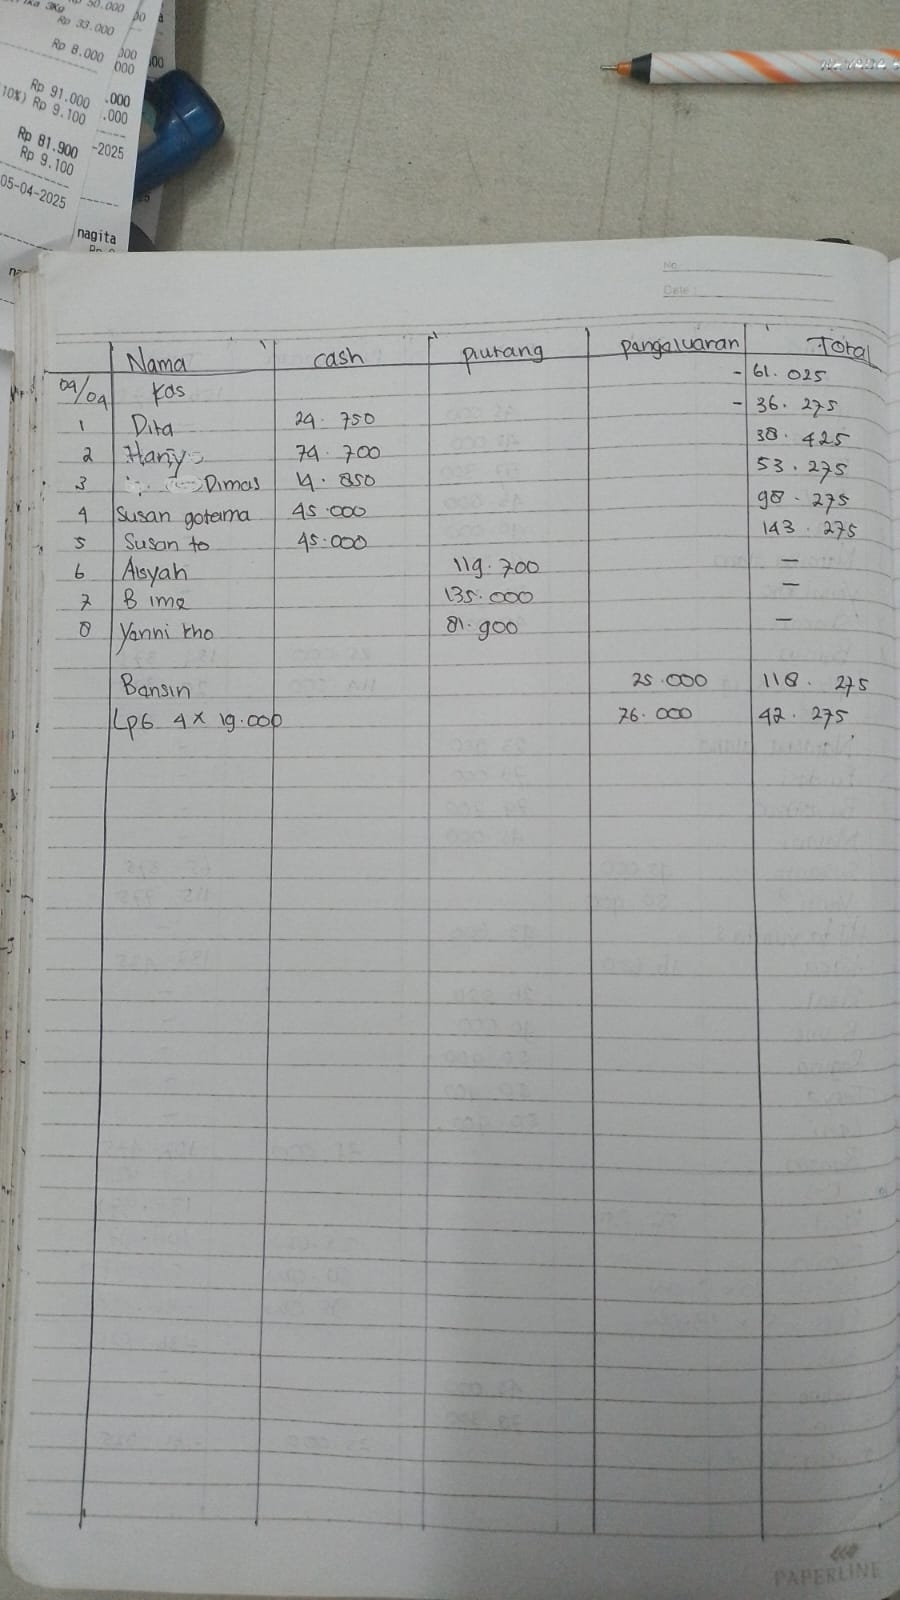 3Kg Rp 50.000
Rp 33.000
Rp 8.000
Rp 91.000
10%) Rp 9.100
Rp 81.900
Rp 9.100
05-04-2025
-2025
nagita
NEVADA
No.
Date :
Nama cash piutang pengeluaran Total
09/04 Kas - 61.025
1 Dita 24.750 - 36.275
2 Hariyo 74.700 38.425
3 Dimas 14.850 53.275
4 Susan gotama 45.000 98.275
5 Susan to 45.000 143.275
6 Aisyah 119.700 —
7 Bima 135.000 —
8 Yanni kho 81.900 —
Bansin 25.000 118.275
Lpg 4 x 19.000 76.000 42.275
PAPERLINE